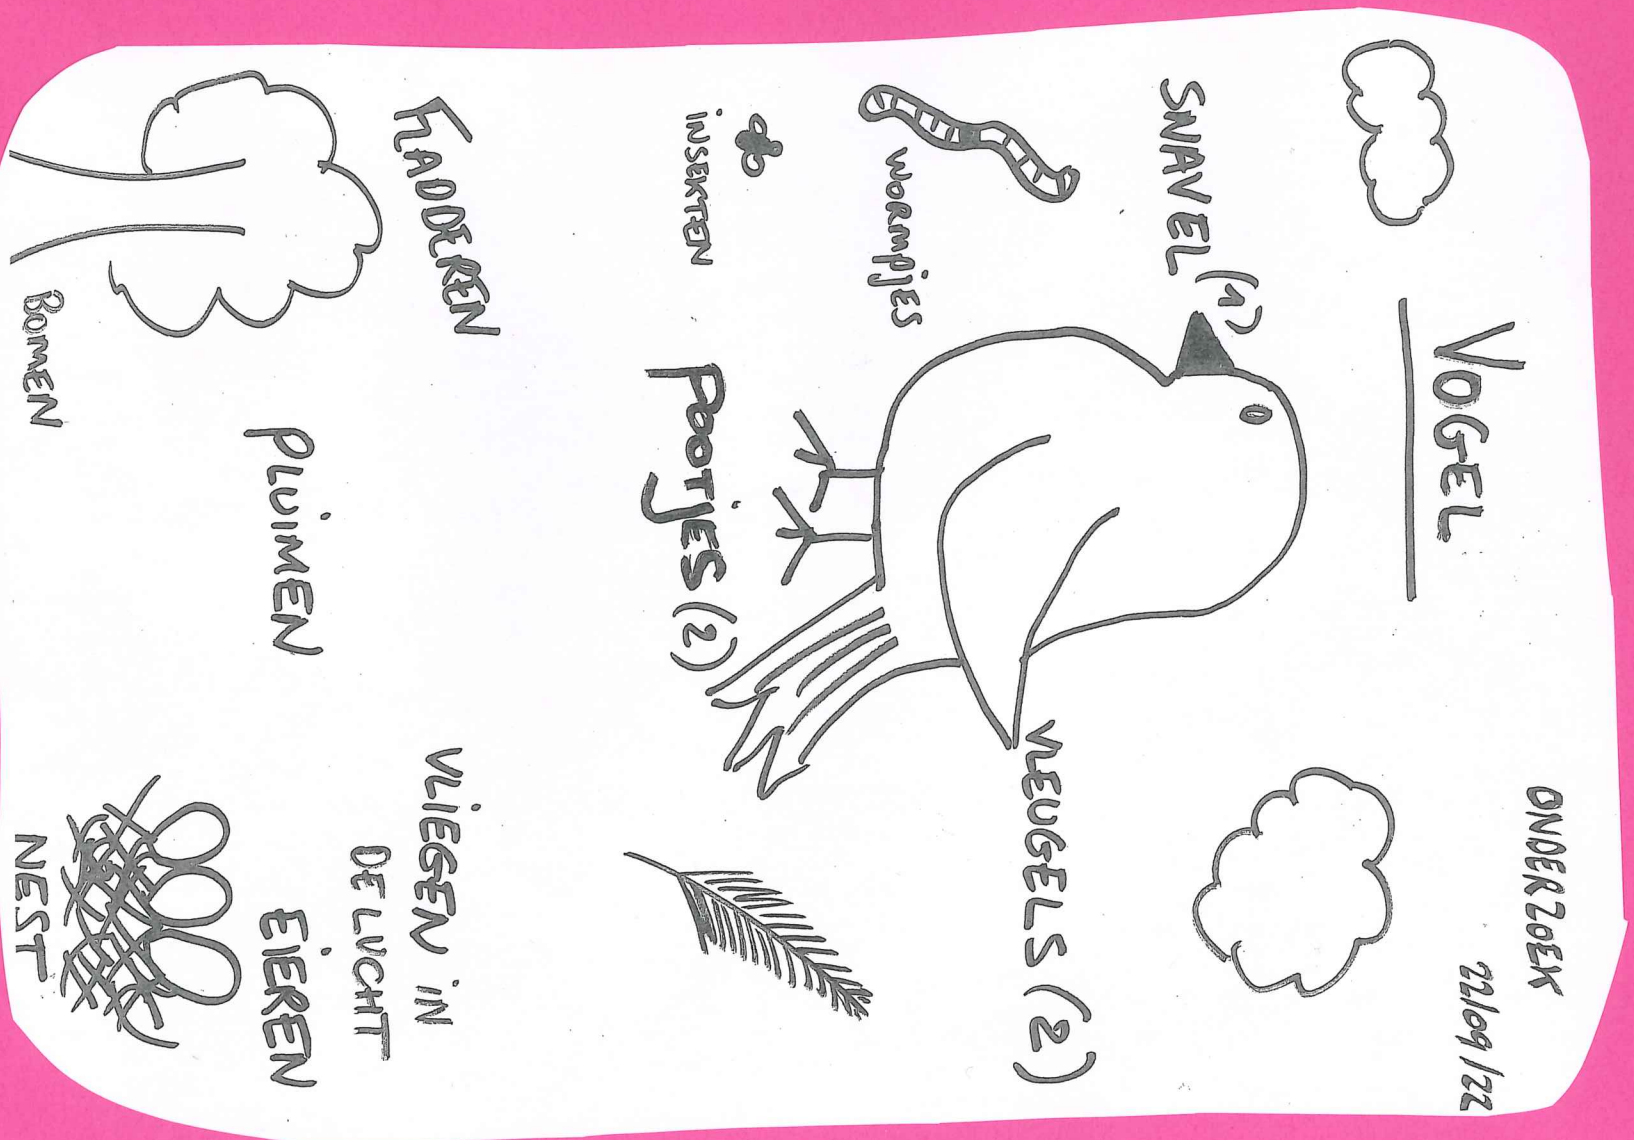 ONDERZOEK
22/09/22
VOGEL
SNAVEL (1)
VLEUGELS (2)
WORMPJES
INSEKTEN
POOTJES (2)
KADDEREN
VLIEGEN IN
DE LUCHT
PLUIMEN
EIEREN
BOMEN
NEST